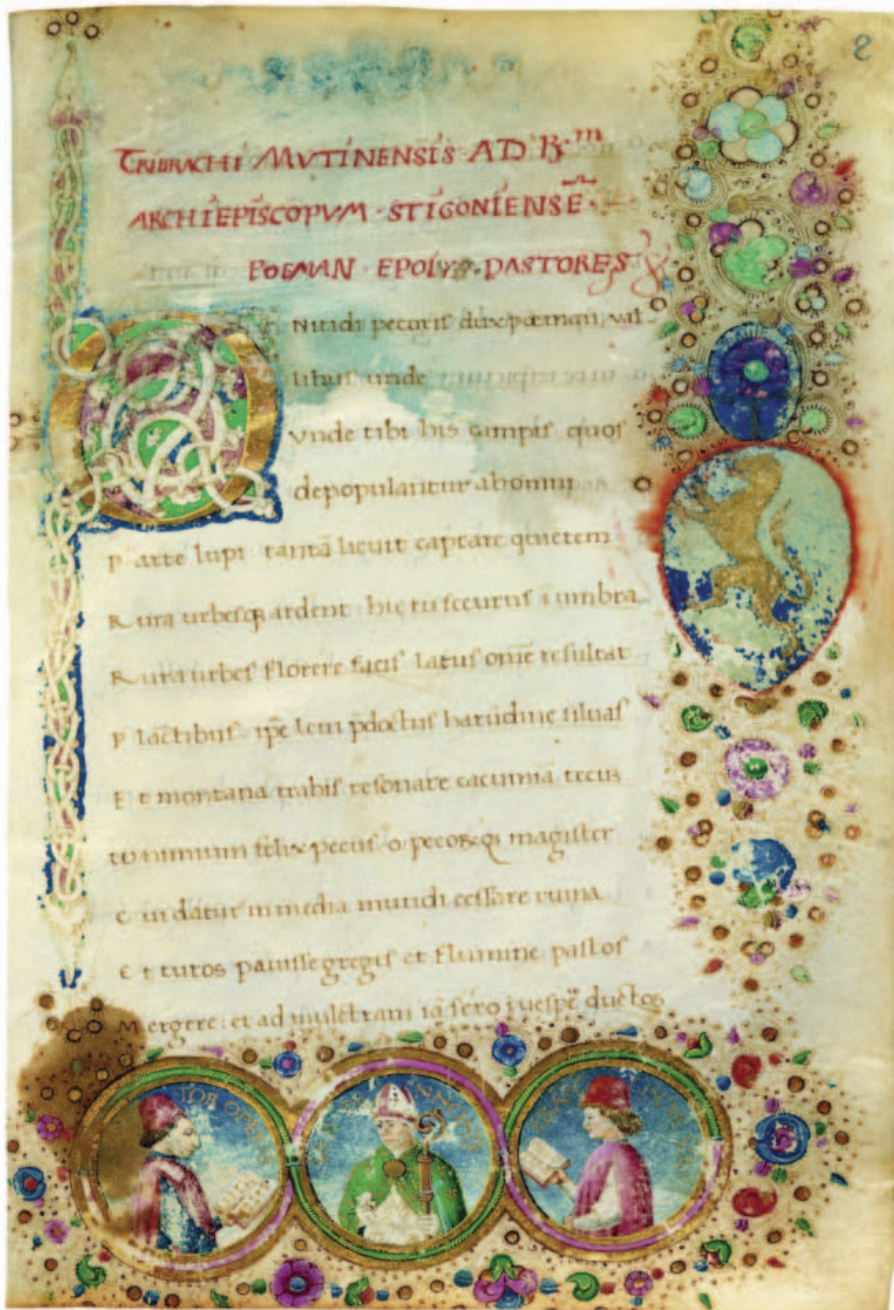 2
TRIBRACHI MVTINENSIS AD R.m
ARCHIEPISCOPVM · STIGONIENSĒ ·
POEMAN · EPOLYS · PASTORES
Nitidi pecoris dux poeman, val
libus unde
Vnde tibi his campis quos
depopulantur ab omni
Parte lupi tantā licuit captare quietem
Rura urbesq ardent hic tu securus ī umbra
Rura urbes florere facis latus om̄e resultat
P lāctibus ip̄e leui p̄doctus harūdine siluas
Et montana trahis resonare cacumīa tecū
o nimium felix pecus o pecorisq magister
Cui datur in media mundi cessare ruina
Et tutos pauisse greges et flumine pastos
Mergere: et ad mulctram iā sero ī uesp̄e ductos